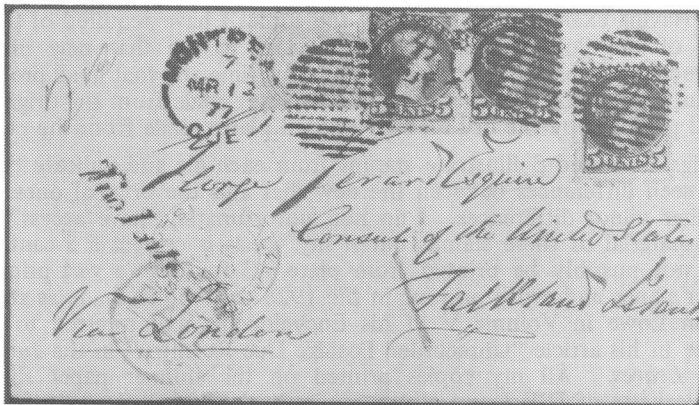 MONTREAL
7
MR 12
77
QUE
5 CENTS 5
5 CENTS 5
5 CENTS 5
George Gerard Esquire
Consul of the United States
Falkland Islands
Via London